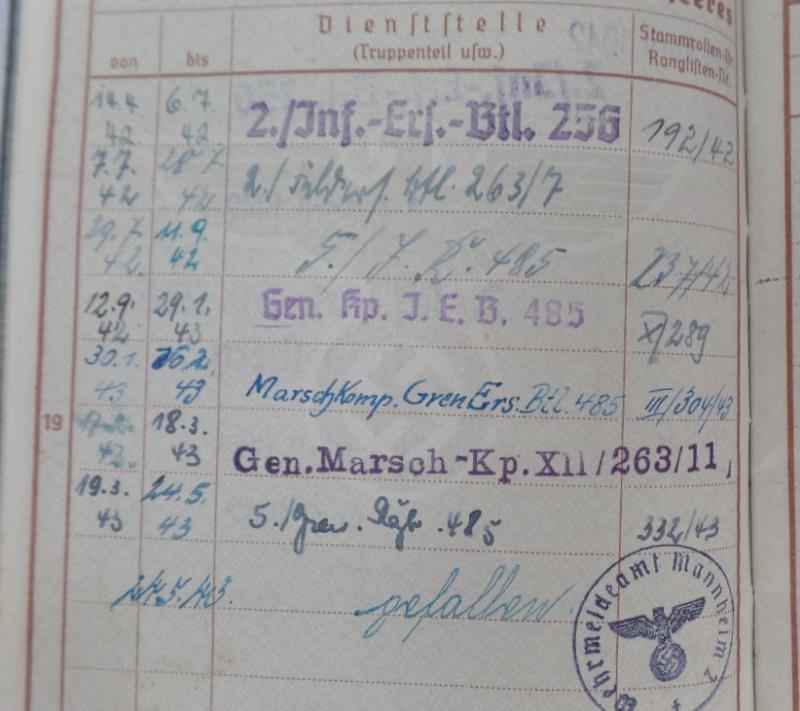 Heeres
Dienststelle
(Truppenteil usw.)
von bis
Stammrollen-Nr.
Ranglisten-Nr.
14.4. 42 6.7. 42 2./Inf.-Ers.-Btl. 256 192/42
7.7. 42 28.7. 42 2./Felders. btl. 263/7
29.7. 42. 11.9. 42 5./J.R. 485 237/42
12.9. 42 29.1. 43 Gen. Kp. J. E. B. 485 X/289
30.1. 43 16.2. 43 MarschKomp. GrenErs. Btl. 485 III/304/43
19
43. 18.3. 43 Gen.Marsch-Kp.XII/263/11,
19.3. 43 24.5. 43 5./Gren. Rgt. 485 332/43
24.5.43. gefallen.
Wehrmeldeamt Mannheim 2